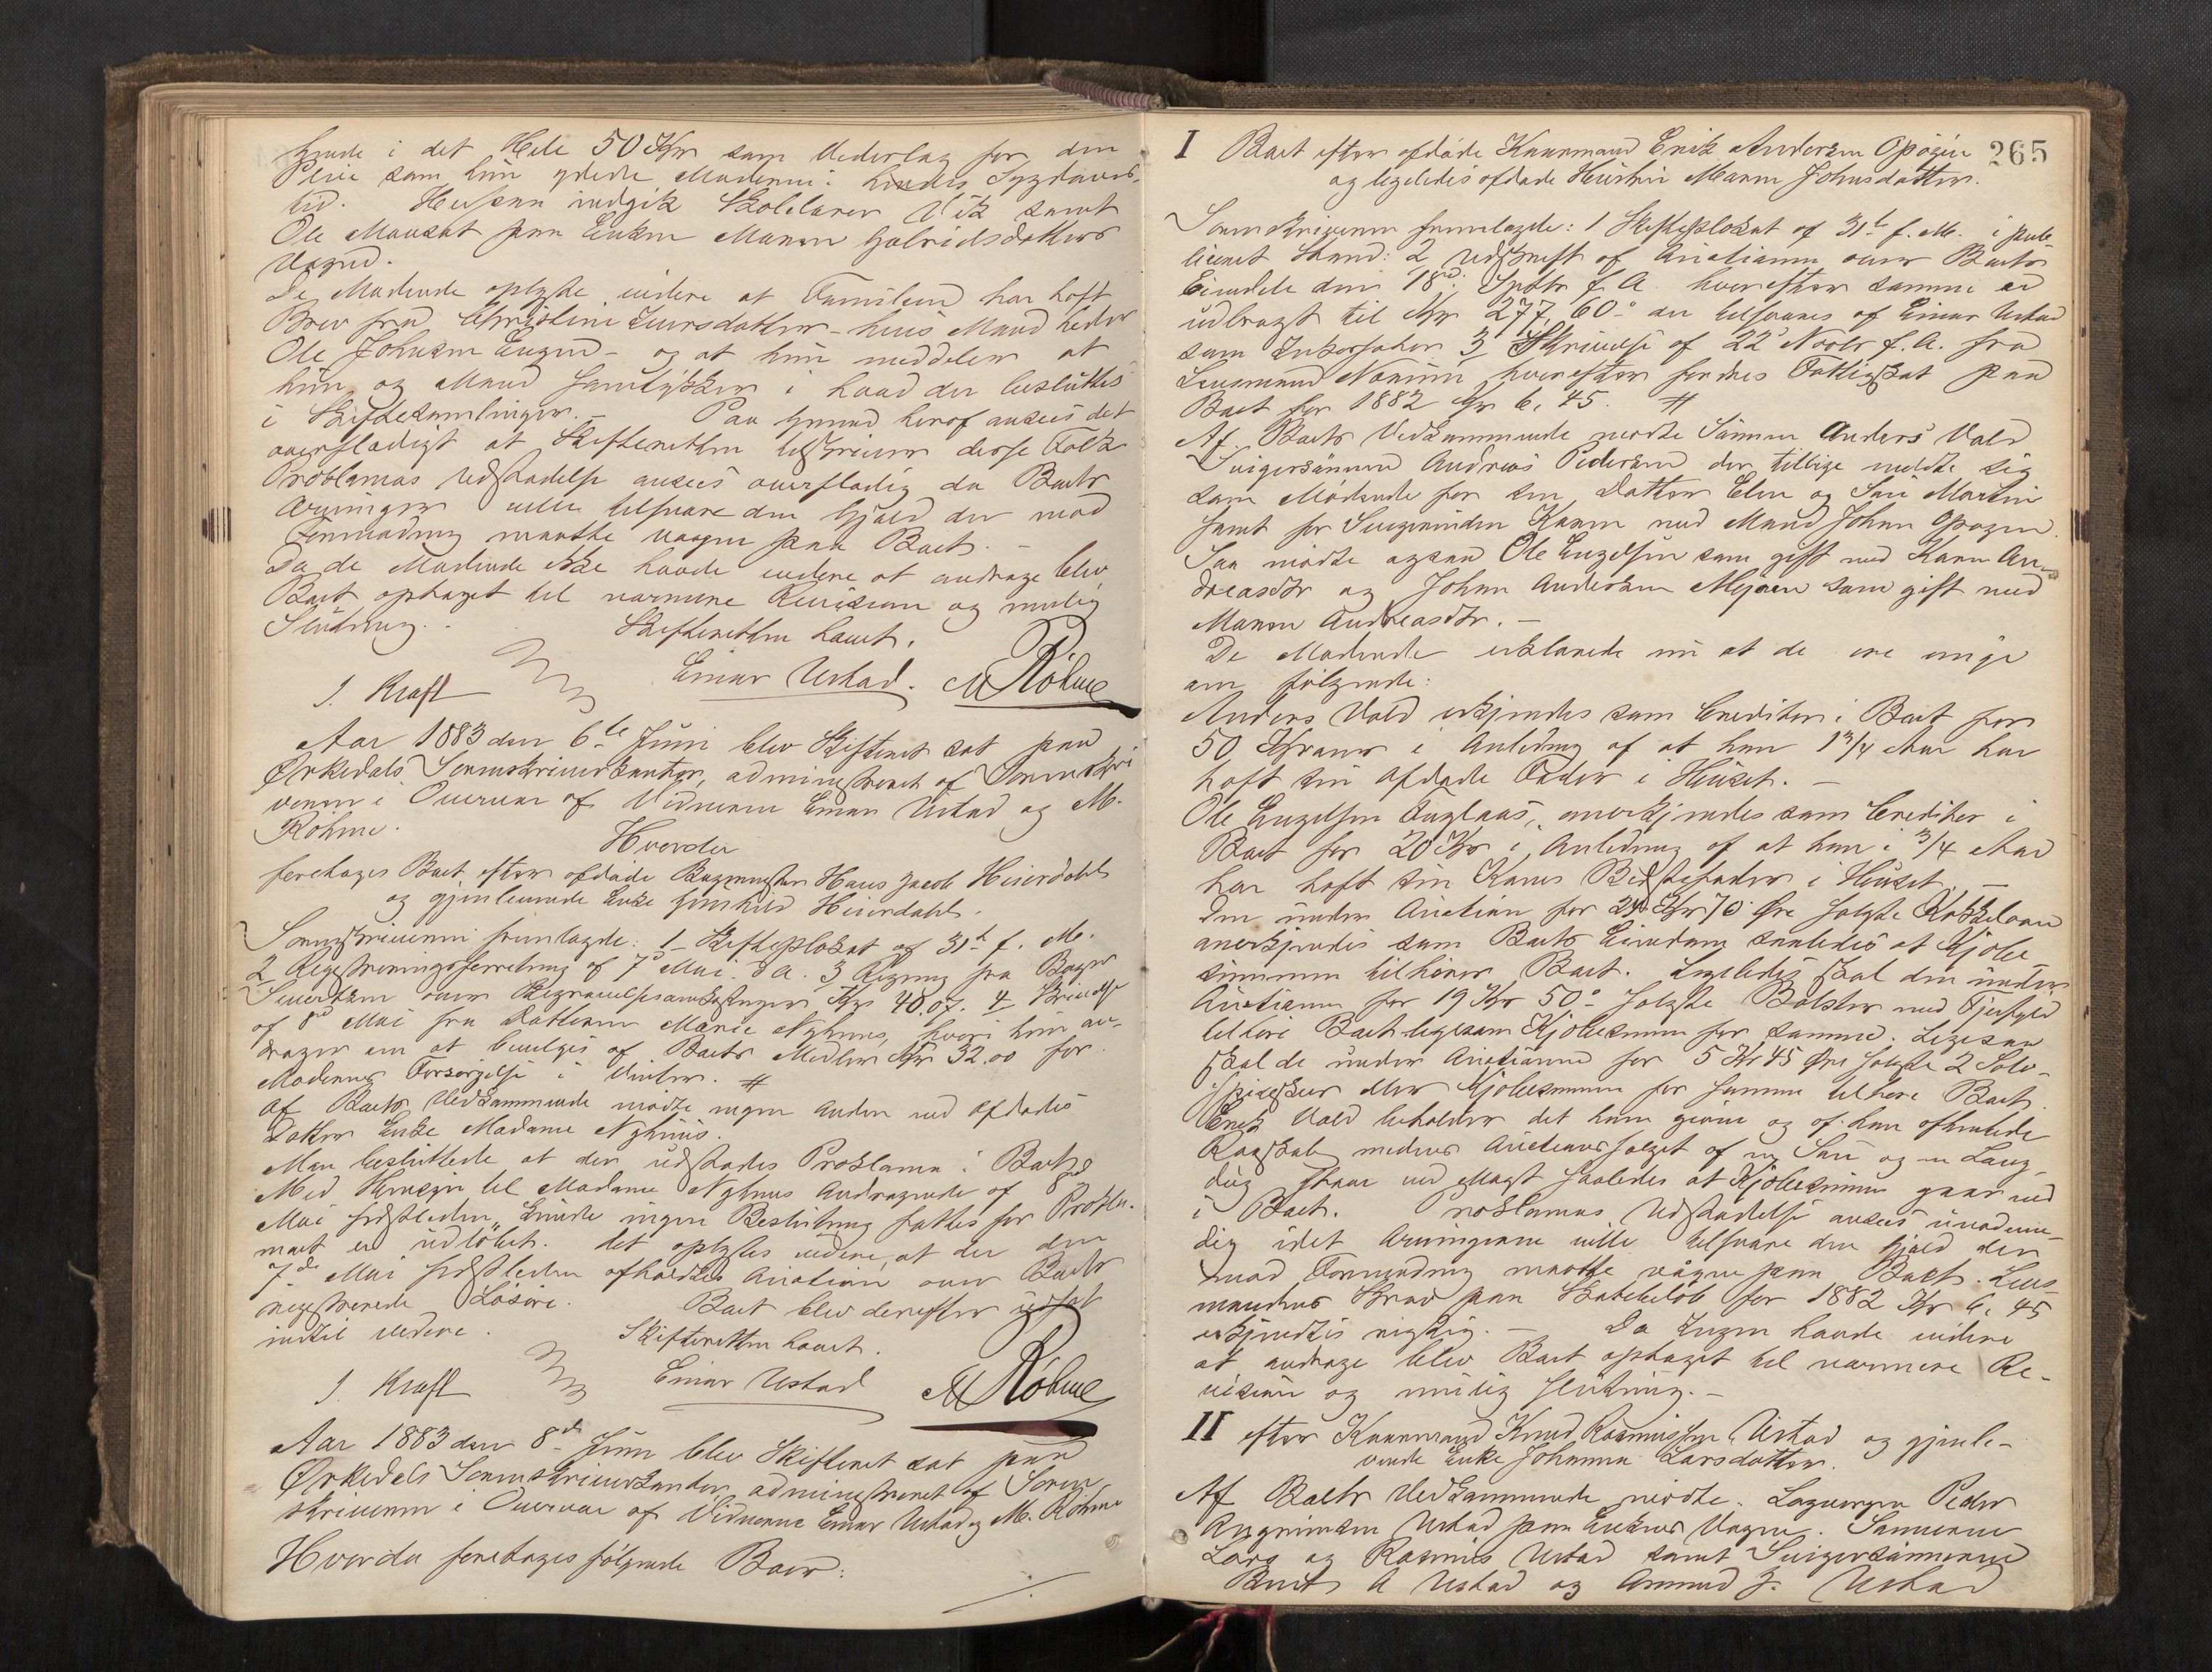 hende i det Hele 50 Kr som Vederlag for den
Pleie som hun ydede Moderen i hendes Sygdoms-
tid. Herpaa indgik Skolelærer Vik samt
Ole paa Enken Maren
Vegne.
De Mødende oplyste videre at Familien har haft
Brev fra Christine Iversdatter - hvis Mand heder
Ole Johnsen - og at hun meddeler at
hun og Mand samtykker i hvad der besluttes
i Skiftesamlingen. - Paa Grund heraf ansees det
overflødigt at Skifteretten tilskriver disse Folk
Proklamas Udstædelse ansees overflødig da Boets
Arvinger ville tilsvare den Gjæld der mod
Formodning maatte være paa Boet. -
Da de Mødende ikke havde videre at andrage blev
Boet optaget til nærmere Revision og mulig
Slutning. - Skifteretten hævet.
J. Kraft Einar Ustad. M Röhme
Aar 1883 den 6te Juni blev Skifteret sat paa
Ørkedals Sorenskriverkontor, administreret af Sorenskri
veren i Overvær af Vidnerne Einar Ustad og M.
Röhme.
Hvorda
foretoges Boet efter afdøde Bogmester Hans Jacob Heierdahl
og gjenlevende Enke Gunhild Heierdahl.
Sorenskriveren fremlagde: 1 Skifteplakat af 31te f. M.
2 Registreringsforretning af 7de Mai d A. 3 Regning fra Bager
Sivertsen over Begravelsesomkostninger Kr 40.07. 4 Skrivelse
af 8de Mai fra Datteren Marie Nyhuus, hvori hun an-
drager om at bevilges af Boets Midler Kr 32.00 for
Moderens Forsørgelse i Vinter. #
Af Boets Vedkommende mødte ingen Anden end Afdødes
Datter Enke Madame Nyhuus.
Man besluttede at der udstædes Proklama i Boet.
Med Hensyn til Madame Nyhuus Andragende af 8de
Mai sidstleden kunde ingen Beslutning fattes før Prokla-
maet er udløbet. Det oplystes videre, at der den
7de Mai sidstleden afholdtes Auction over Boets
registrerede Løsøre. Boet blev derefter udsat
indtil videre. Skifteretten hævet.
J. Kraft Einar Ustad M Röhme
Aar 1883 den 8de Juni blev Skifteret sat paa
Ørkedals Sorenskriverkontor, administreret af Soren
skriveren i Overvær af Vidnerne Einar Ustad og M. Röhme
Hvorda foretoges følgende Boer:
265
I Boet efter afdøde Kaarmand Erik Andersen Opøien
og ligeledes afdøde Hustru Maren Johnsdatter.
Sorenskriveren fremlagde: 1 Skifteplakat af 31te f. M. i pub-
liceret Stand: 2 Udskrift af Auctionen over Boets
Eiendele den 18de Septbr f. A. hvorefter samme er
udbragt til Kr 277, 60 ø der tilsvares af Einar Ustad
som Inkassator 3 Skrivelse af 22de Novbr f. A. fra
Lensmand hvorefter fordres Fattigskat paa
Boet for 1882 Kr 6, 45. #
Af Boets Vedkommende mødte Sønnen Anders Vold
Svigersønnen Andreas Pedersen der tillige meldte sig
som Mødende for sin Datter Elen og Søn Martin
samt for Svigerinden Karen med Mand Johan Opøien.
Saa mødte ogsaa Ole Engelsen som gift med Karen An-
dreasdtr og Johan Andersen Mejaen som gift med
Maren Andreasdtr. -
De Mødende erklærede nu at de ere enige
om følgende:
Anders Vold erkjendes som Creditor i Boet for
50 Kroner i Anledning af at han 1 3/4 Aar har
haft sin afdøde Fader i Huset. -
Ole Engelsen anerkjendes som Creditor i
Boet for 20 Kr i Anledning af at han i 3/4 Aar
har haft sin Kones Bedstefader i Huset. -
Den under Auction for 24 Kr 70 Øre solgte
anerkjendes som Boets Eiendom saaledes at Kjøbe
summen tilhører Boet. Ligeledes skal den under
Auctionen for 19 Kr 50 ø solgte Bolster med
tilhøre Boet ligesom Kjøbesummen for samme. Ligesaa
skal de under Auctionen for 5 Kr 45 Øre solgte 2 Sølv-
skeer eller Kjøbesummen for samme tilhøre Boet.
Erik Vold beholder det ham givne og af ham afhentede
medens Auctionssalget af en og en
staar ved Magt saaledes at Kjøbesummen gaar ind
i Boet. Proklamas Udstædelse ansees unødven-
dig idet Arvingerne ville tilsvare den Gjæld der
mod Formodning maatte være paa Boet. Lens-
mandens Krav paa Skattebeløb for 1882 Kr 6, 45
erkjendtes rigtig. - Da Ingen havde videre
at andrage blev Boet optaget til nærmere Re-
vision og mulig Slutning. -
II efter Kaarmand Knud Rasmussen Ustad og gjenle-
vende Enke Johanna Larsdatter.
Af Boets Vedkommende mødte. Lagværgen Peder
Ustad paa Enkens Vegne. Sønnerne
Lars og Rasmus Ustad samt Svigersønnerne
A Ustad og Amund J. Ustad